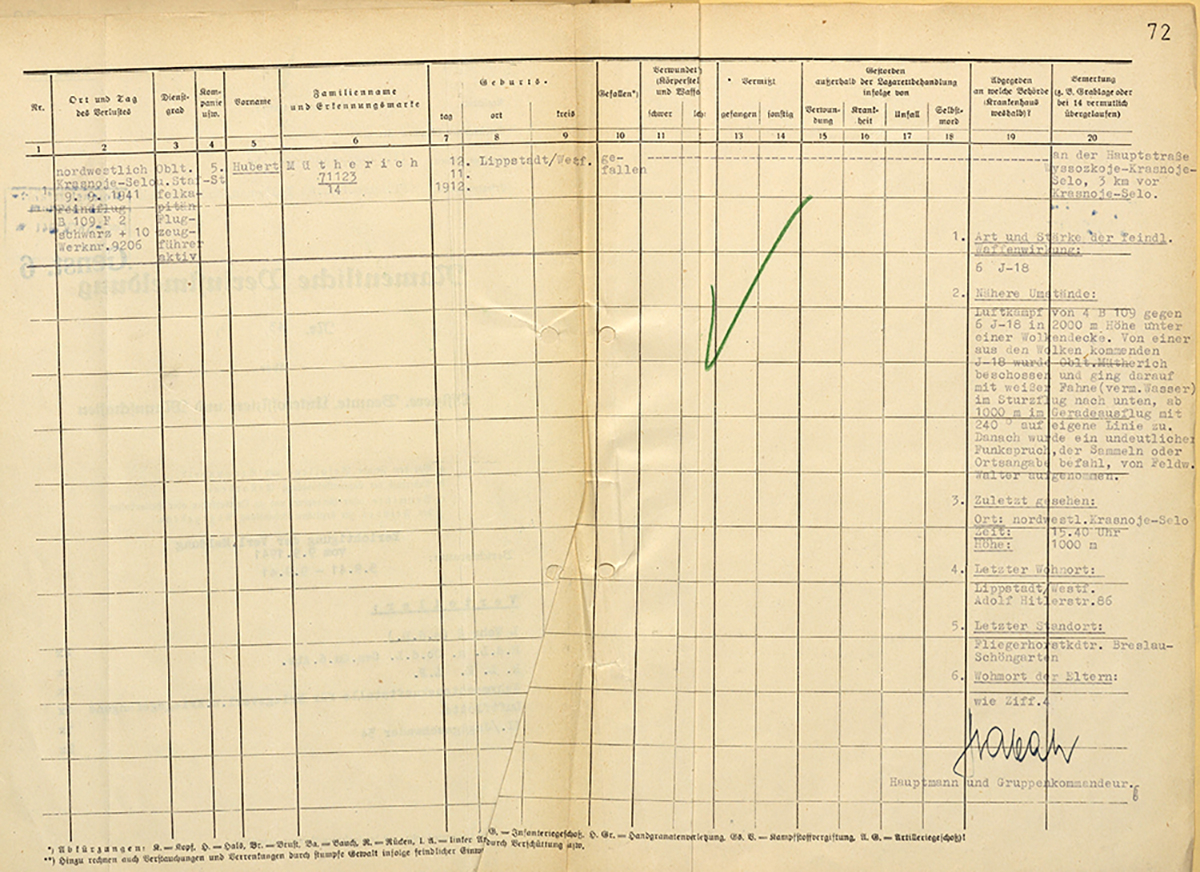 72
Nr.
Ort und Tag
des Verlustes
Dienst-
grad
Kom-
panie
usw.
Vorname
Familienname
und Erkennungsmarke
Geburts-
tag
ort
kreis
Gefallen*)
Verwundet
(Körperstel
und Waffe
schwer
Vermißt
gefangen
sonstig
Gestorben
außerhalb der Lazarettbehandlung
infolge von
Verwun-
dung
Krank-
heit
Unfall
Selbst-
mord
Abgegeben
an welche Behörde
(Krankenhaus
weshalb)?
Bemerkung
(z. B. Grablage oder
bei 14 vermutlich
übergelaufen)
1 2 3 4 5 6 7 8 9 10 11 13 14 15 16 17 18 19 20
nordwestlich
Krasnoje-Selo
9. 9. 1941
Feindflug
B 109 F 2
schwarz + 10
Werknr.9206
Oblt.
u.Staf-
felka-
pitän
Flug-
zeug-
führer
aktiv
5.
St
Hubert
Mütherich
71123
14
12.
11.
1912.
Lippstadt/Westf.
ge-
fallen
an der Hauptstraße
Wyssozkoje-Krasnoje-
Selo, 3 km vor
Krasnoje-Selo.
1. Art und Stärke der feindl.
Waffenwirkung:
6 J-18
2. Nähere Umstände:
Luftkampf von 4 B 109 gegen
6 J-18 in 2000 m Höhe unter
einer Wolkendecke. Von einer
aus den Wolken kommenden
J-18 wurde Oblt.Mütherich
beschossen und ging darauf
mit weißer Fahne(verm.Wasser)
im Sturzflug nach unten, ab
1000 m im Geradeausflug mit
240 ° auf eigene Linie zu.
Danach wurde ein undeutlicher
Funkspruch,der Sammeln oder
Ortsangabe befahl, von Feldw.
Walter aufgenommen.
3. Zuletzt gesehen:
Ort: nordwestl.Krasnoje-Selo
Zeit: 15.40 Uhr
Höhe: 1000 m
4. Letzter Wohnort:
Lippstadt/Westf.
Adolf Hitlerstr.86
5. Letzter Standort:
Fliegerhorstkdtr. Breslau-
Schöngarten
6. Wohnort der Eltern:
wie Ziff.4
Hauptmann und Gruppenkommandeur.
*) Abkürzungen: K. — Kopf, H. — Hals, Br. — Brust, Ba. — Bauch, R. — Rücken, l. A. — linker A
G. — Infanteriegeschoß, H. Gr. — Handgranatenverletzung, Gs. V. — Kampfstoffvergiftung, A. G. — Artilleriegeschoß)
**) Hinzu rechnen auch Verstauchungen und Verrenkungen durch stumpfe Gewalt infolge feindlicher Einw
durch Verschüttung usw.